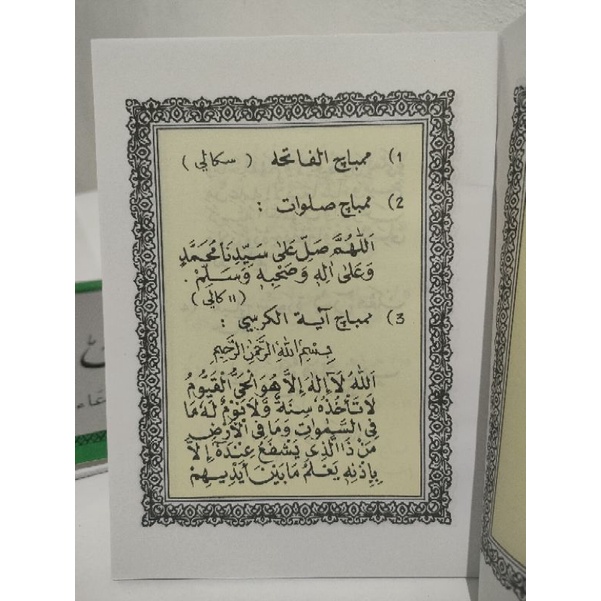 1) ممباچ الفاتحه ( سكالي )
2) ممباچ صلوات :
اَللّٰهُمَّ صَلِّ عَلىٰ سَيِّدِنَا مُحَمَّدٍ
وَعَلىٰ اٰلِهٖ وَصَحْبِهٖ وَسَلِّمْ .
( ١١ كالي )
3) ممباچ آية الكرسي :
بِسْمِ اللهِ الرَّحْمٰنِ الرَّحِيْمِ
اَللهُ لَآ اِلٰهَ اِلاَّ هُوَ الْحَيُّ الْقَيُّوْمُ
لَا تَأْخُذُهٗ سِنَةٌ وَّلَا نَوْمٌ لَهٗ مَا
فِى السَّمٰوَاتِ وَمَا فِى الْاَرْضِ
مَنْ ذَا الَّذِىْ يَشْفَعُ عِنْدَهٗ اِلاَّ
بِاِذْنِهٖ يَعْلَمُ مَا بَيْنَ اَيْدِيْهِمْ